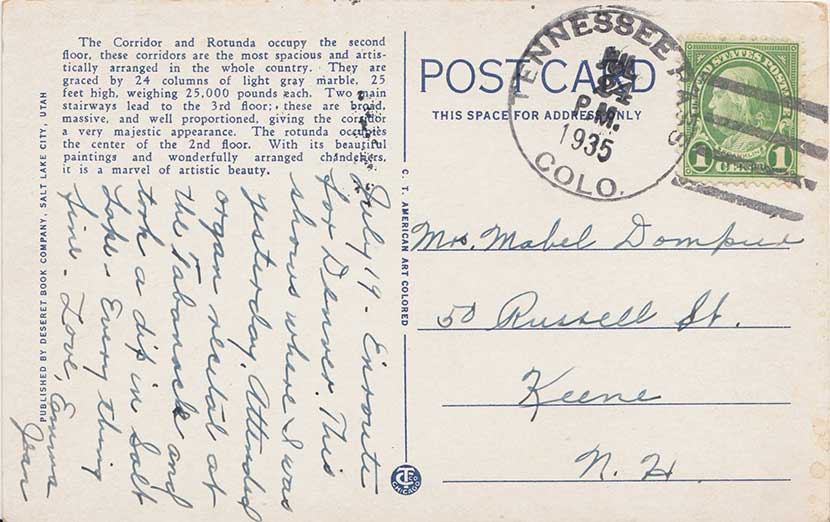 The Corridor and Rotunda occupy the second
floor, these corridors are the most spacious and artis-
tically arranged in the whole country. They are
graced by 24 columns of light gray marble, 25
feet high, weighing 25,000 pounds each. Two main
stairways lead to the 3rd floor; these are broad,
massive, and well proportioned, giving the corridor
a very majestic appearance. The rotunda occupies
the center of the 2nd floor. With its beautiful
paintings and wonderfully arranged chandeliers,
it is a marvel of artistic beauty.
PUBLISHED BY DESERET BOOK COMPANY, SALT LAKE CITY, UTAH
July 19 - Enroute
for Denver. This
shows where I was
yesterday. Attended
organ recital at
the Tabanacle and
took a dip in Salt
Lake - Everything
fine - Love, Emma
Jean
C. T. AMERICAN ART COLORED
CT
CHICAGO
POST CARD
THIS SPACE FOR ADDRESS ONLY
TENNESSEE PASS
P.M.
1935
COLO.
UNITED STATES POSTAGE
1 1
Mrs. Mabel
50 Russell St.
Keene
N. H.